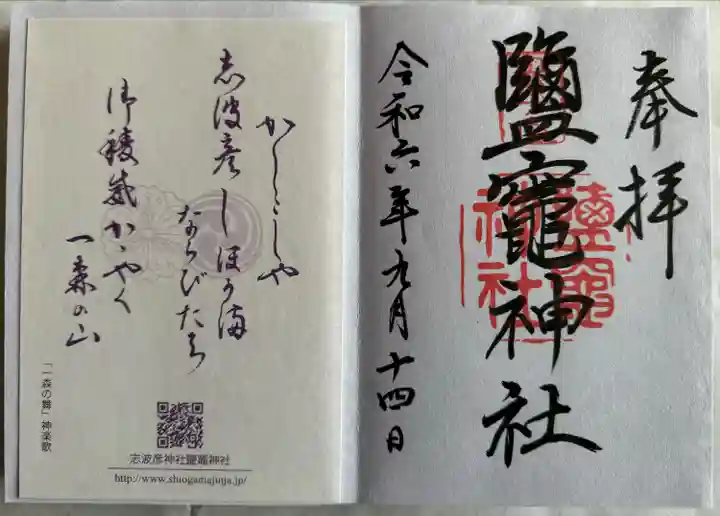 奉拝
鹽竈神社
令和六年九月十四日
鹽竈
神社
かしこしや
志波彦しほがま
ならびたち
御稜威かゝやく
一森の山
「一森の舞」神楽歌
志波彦神社鹽竈神社
http://www.shiogamajinja.jp/